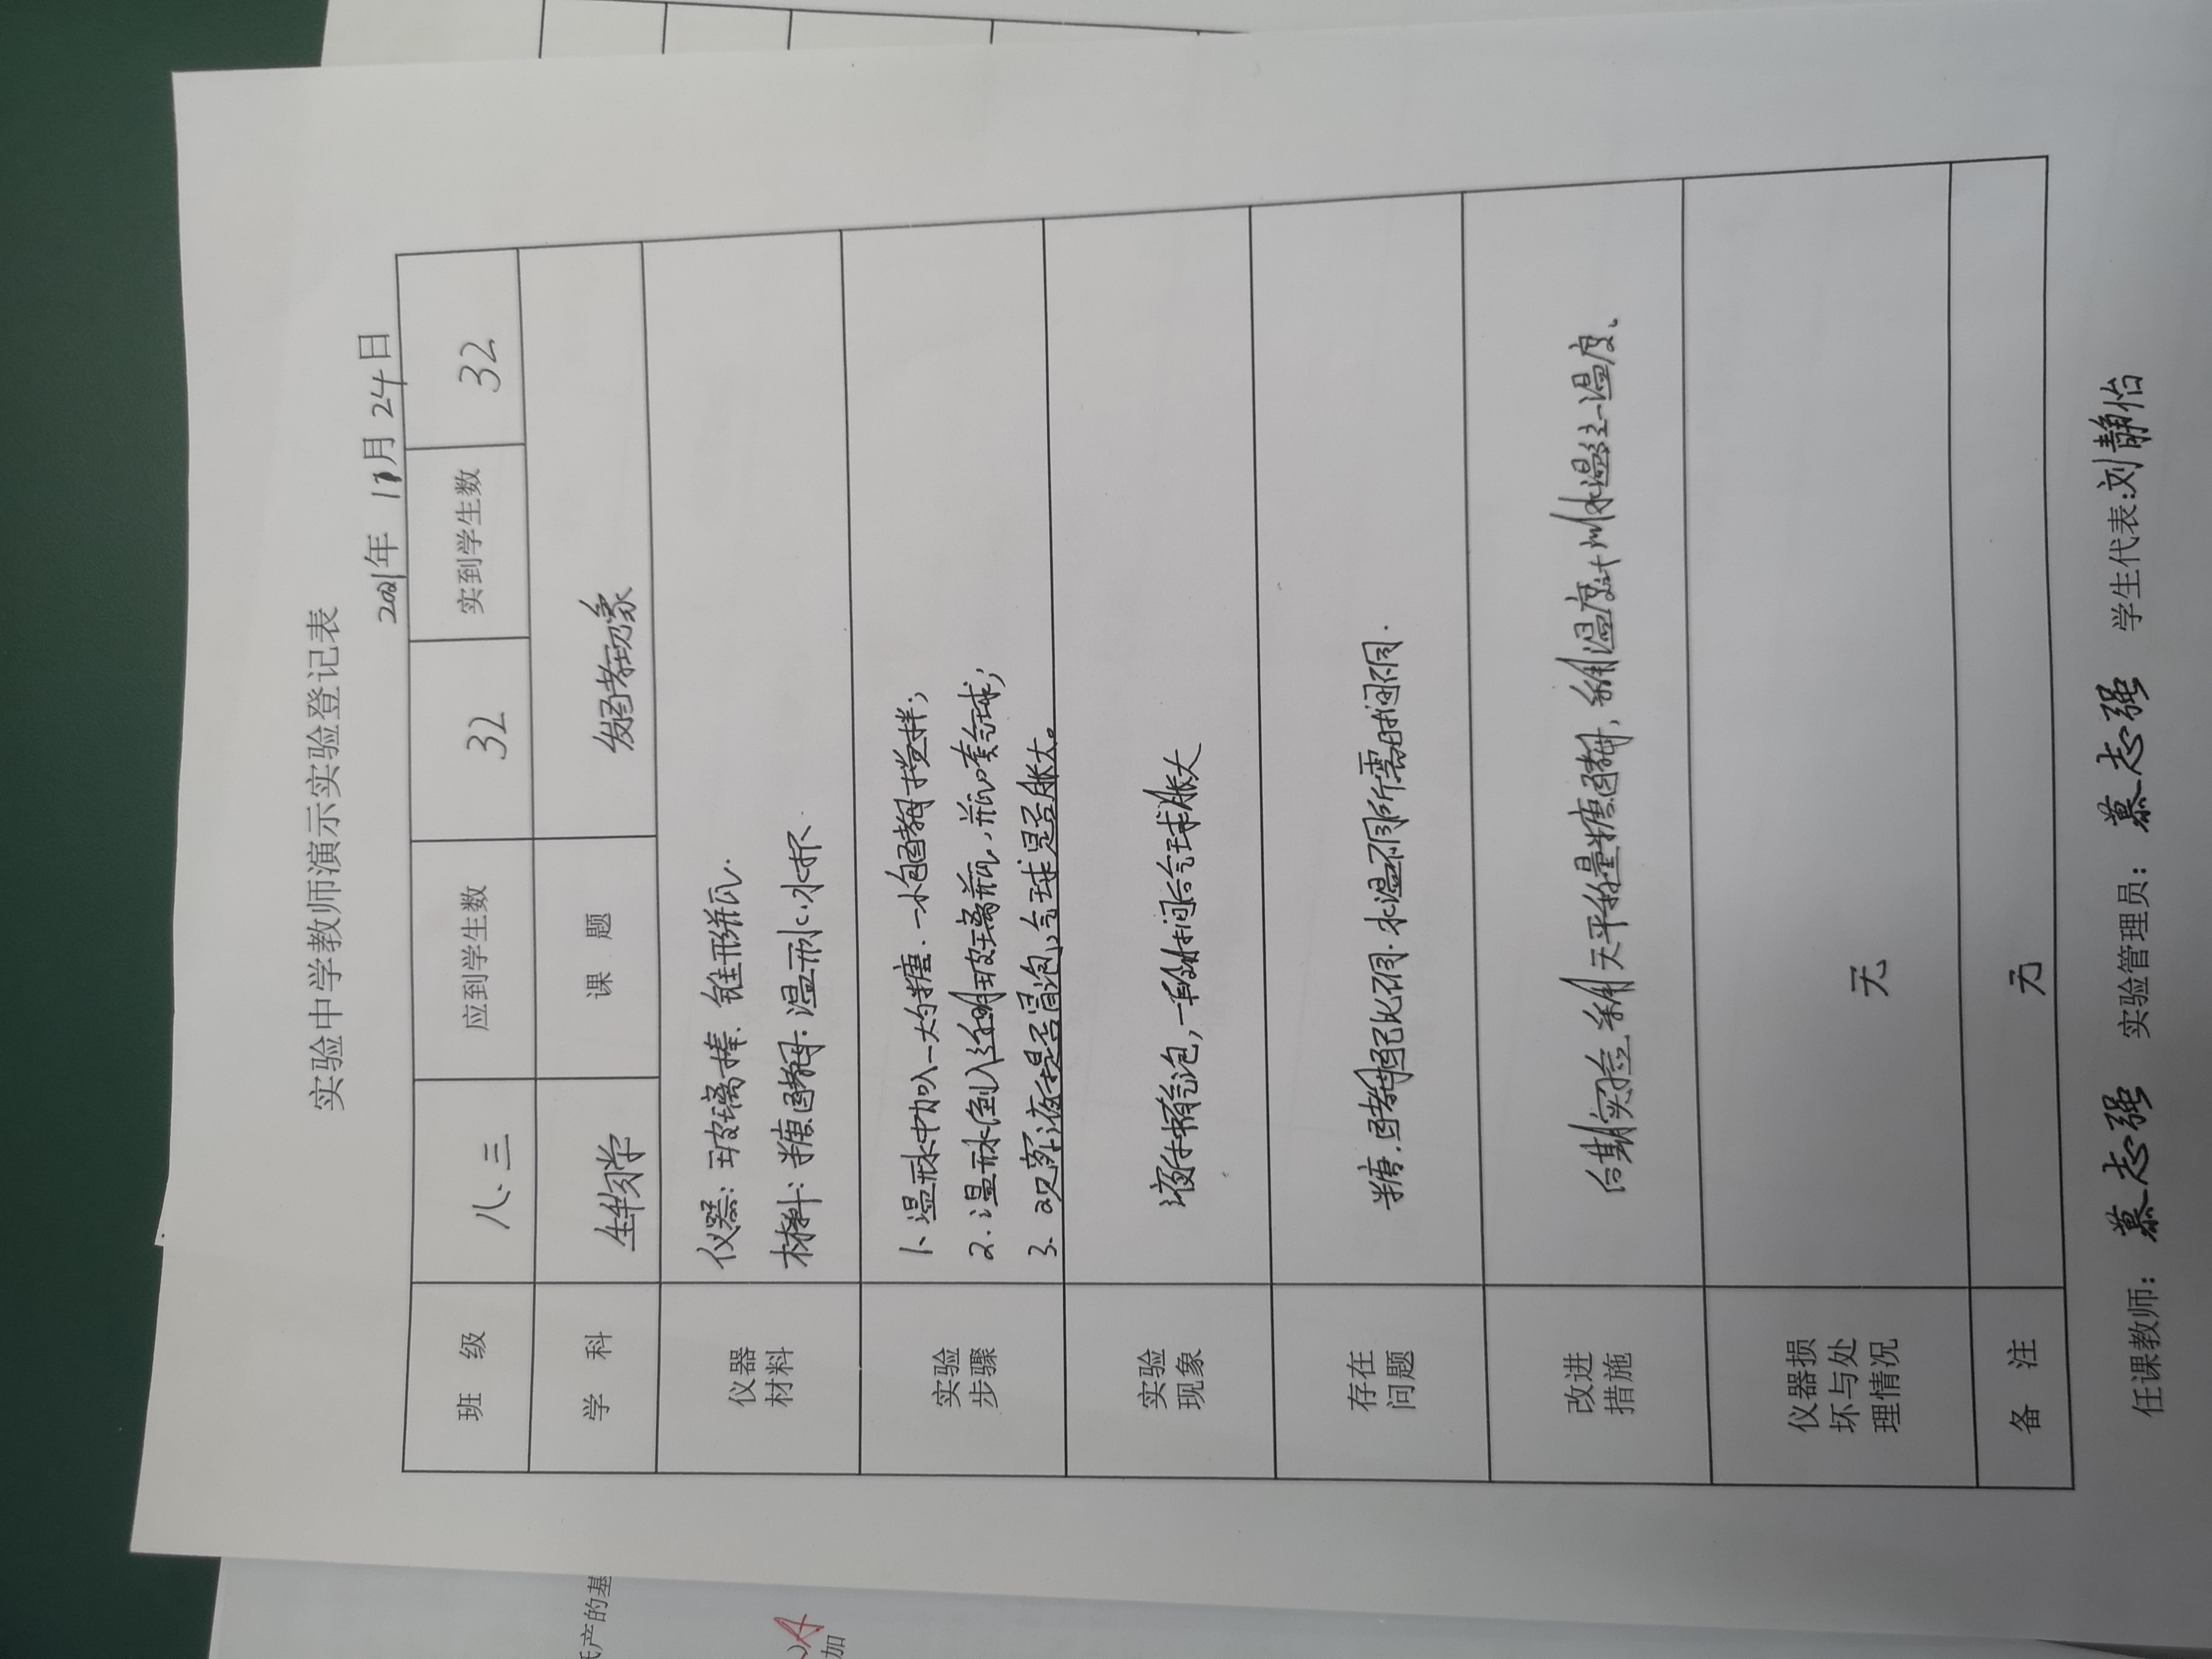 实验中学教师演示实验登记表
2021年 11月 24日
班 级 八、三 应到学生数 32 实到学生数 32
学 科 生物学 课 题 发酵现象
仪器
材料
仪器：玻璃棒、锥形瓶.
材料：糖.酵母.温开水.水杯.
实验
步骤
1、温开水中加入一大勺糖.一小包酵母搅拌；
2.温开水倒入透明玻璃瓶，瓶口套气球；
3.观察液体是否冒泡，气球是否胀大。
实验
现象
液体有气泡，一段时间后气球胀大
存在
问题
糖.酵母配比不同.水温不同所需时间不同.
改进
措施
后期实验采用天平称量糖酵母，采用温度计测水温统一温度、
仪器损
坏与处
理情况
无
备 注 无
任课教师：慕志强 实验管理员：慕志强 学生代表:刘静怡
产的基
加